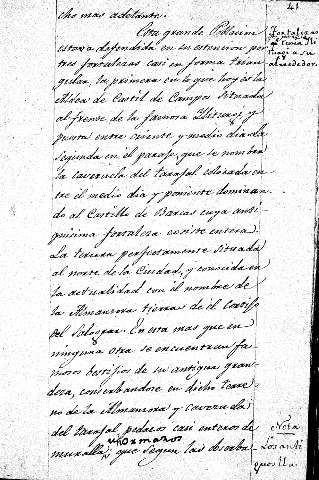 41
cho mas adelante.
Esta grande Poblacion
estava defendida en su estension por
tres fortalezas casi en forma trian-
gular, la primera en lo que hoy es la
Aldea de Castil de Campos situada
al frente de la famosa Illiturgi y
puesta entre oriente y medio dia la
segunda en el parage, que se nombra
la caveruela del tarajal colocada en-
tre el medio dia y poniente dominan-
do al Castillo de Barcas cuya anti-
quisima fortaleza ecsiste entera.
La tercera perfectamente situada
al norte de la Ciudad, y conocida en
la actualidad con el nombre de
la Almanzora tierras de el Cortijo
del Salogar. En esta mas que en
ninguna otra se encuentran fa-
mosos bestijios de su antigua gran-
deza, conserbandose en dicho terre-
no de la Almanzora y cavera da
del tarajal pedazos casi enteros de
murallas, que segun las
Fortalezas
qe tenia Ili
turgi a su
alrededor.
Nota
Los anti
guos